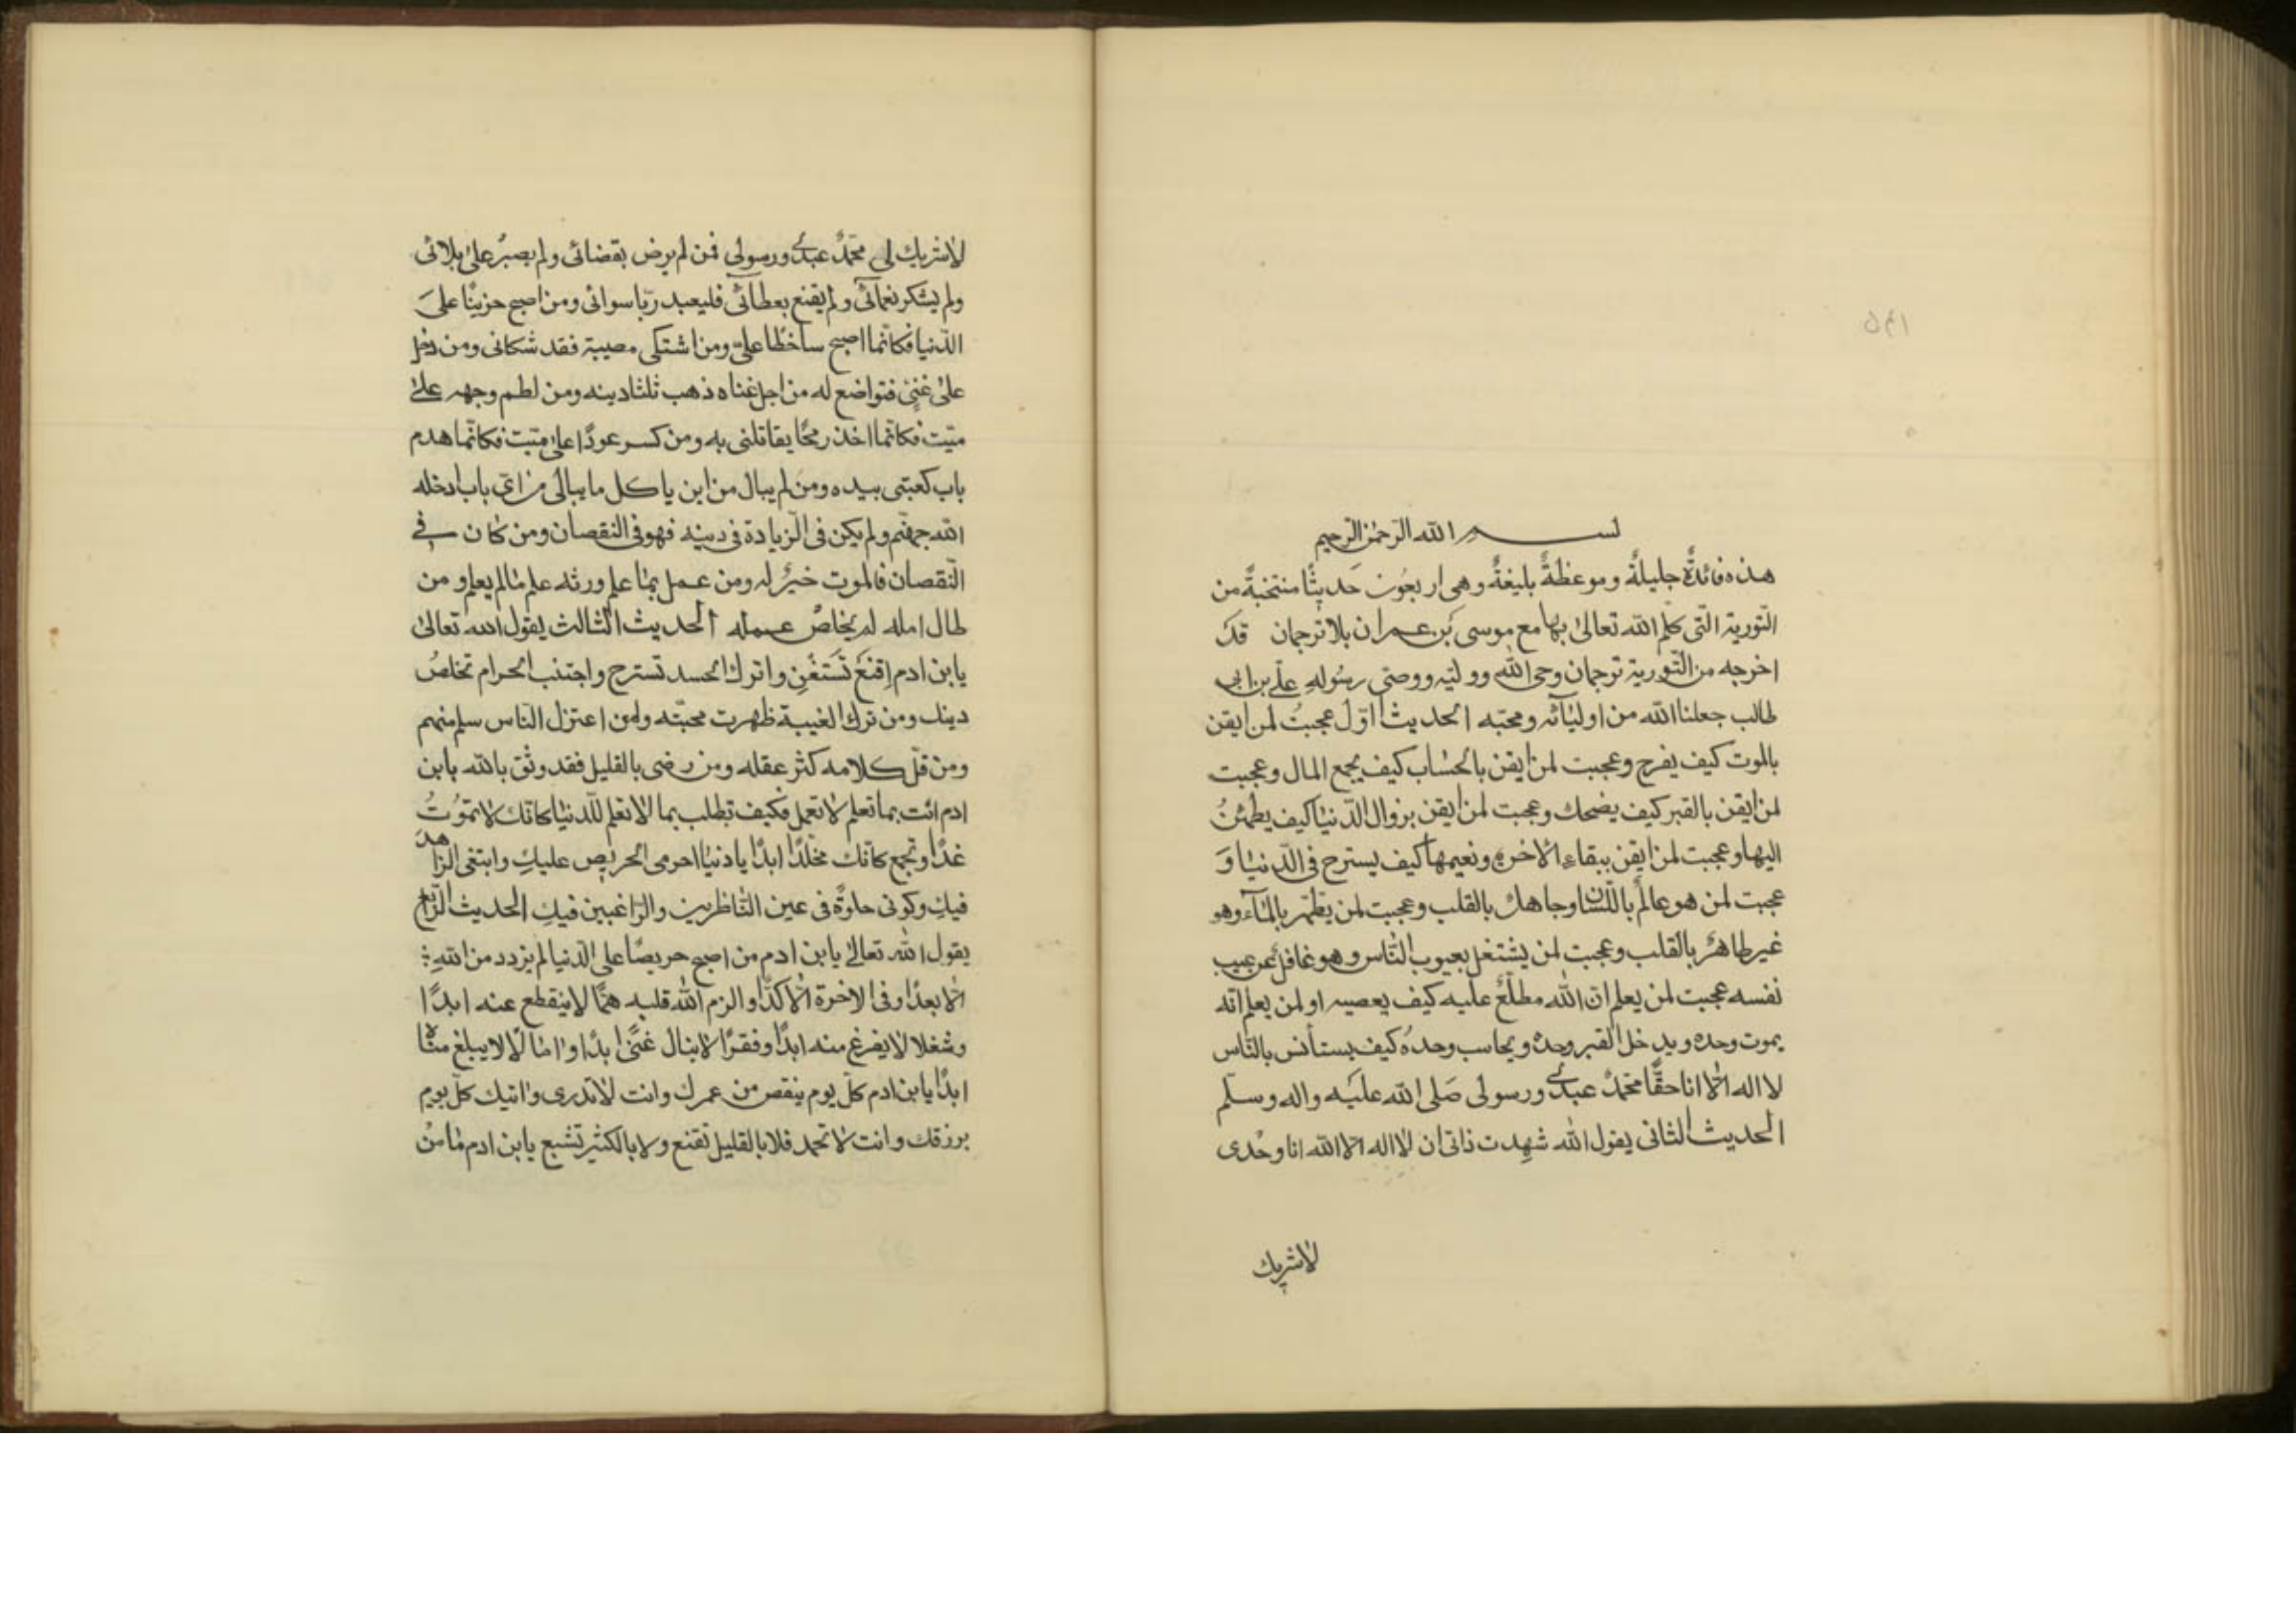 بسم الله الرّحمٰن الرّحیم
هذه فائدةٌ جلیلةٌ وموعظةٌ بلیغةٌ وهی اربعُون حَدیثًا منتخبةً من
التّوریة الّتی کلّم الله تعالیٰ بها مع موسی بن عمران بلا ترجمان قدَ
اخرجه من التّوریة ترجمان وحی الله وولیّه ووصّی رسُولهِ علیّ بن ابی
طالب جعلنا الله من اولیآئه ومحبّه الحدیث اوّل عجبتُ لمن ایقن
بالموت کیف یفرح وعجبت لمن ایقن بالحسٰاب کیف یجمع المال وعجبت
لمن ایقن بالقبر کیف یضحك وعجبت لمن ایقن بزوال الدّنیٰا کیف یطمئنُ
الیها وعجبت لمن ایقن ببقاء الاخرة ونعیمها کیف یسترح فی الدّنیٰا وَ
عجبت لمن هو عالمٌ باللّسٰان وجاهلٌ بالقلب وعجبت لمن یطّهر بالمٰآء وهو
غیر طاهرٌ بالقلب وعجبت لمن یشتغل بعیوب النّاس وهو غافلٌ عن عیب
نفسه عجبت لمن یعلم انّ الله مطلّعٌ علیه کیف یعصیه او لمن یعلم انّه
یموت وحده ویدخل القبر وحدهُ ویحاسب وحدهُ کیف یستأنس بالنّاس
لا اله الّا انا حقًّا محمّدٌ عبدی ورسولی صَلی الله علیَه واله وسلّم
الحدیث الثانی یقول الله شهدت ذاتی ان لٰا اله الّا الله انا وحْدی
لٰاشریك
لٰاشریك لی محمّدٌ عبدی ورسولی فمن لم یرض بقضائی ولم یصبرُ علیٰ بلائی
ولم یشکر نعمآئی ولم یقنع بعطآئی فلیعبد ربّا سوائی ومن اصبح حزینًا علیَ
الدّنیا فکانّما اصبح ساخطًا علیّ ومن اشتکی مصیبة فقد شکانی ومن دخل
علیٰ غنیّ فتواضع له من اجل غناه ذهب ثلثا دینه ومن لطم وجهه علیٰ
میّت فکانّما اخذ رمحًا یقاتلنی به ومن کسر عودًا علیٰ میّت فکانّما هدم
باب کعبتی بیده ومن لم یبال من این یاکل ما یبالی من ایّ باب ادخله
الله جهنّم ولم یکن فی الّزیادة فی دینه فهو فی النقصان ومن کٰان فی
النّقصان فالموت خیرٌ له ومن عمل بمٰا علم ورثه علم مٰالم یعلم ومن
طال امله لم یخلصْ عمله الحدیث الثالث یقول الله تعالیٰ
یابن ادم اِقنعَ تَستغن واترك الحسد تسترح واجتنب الحرام تخلصُ
دینك ومن ترك الغیبة ظهرت محبّته ومن اعتزل النّاس سلم منهم
ومن قلّ کلامه کثر عقله ومن رضی بالقلیل فقد وثق بالله یابن
ادم انت بما تعلم لا تعمل فکیف تطلب بما لا تعلم للدّنیٰا کانّك لا تموُتُ
غدًا وتجمع کانّك مخلّدًا ابدًا یا دنیٰا احرمی الحریص علیكِ وابتغی الزّاهدَ
فیكِ وکونی حلوةً فی عین النّاظرین والرّاغبین فیكِ الحدیث الرّابع
یقول الله تعالیٰ یابن ادم من اصبح حریصًا علی الدّنیا لم یزدد من اللهِ
الّا بعدًا وفی الاخرة الّا کدًّا والزم الله قلبه همًّا لاینقطع عنه ابدًا
وشغلا لٰایفرغ منه ابدًا وفقرًا لاینال غنیً ابدًا واماًلا لایبلغ منٰاه
ابدًا یابن ادم کلّ یوم ینقص من عمرك وانت لٰاتدری واتیك کلّ یوم
برزقك وانت لا تحمد فلا بالقلیل تقنع ولا بالکثیر تشبع یابن ادم مٰا منُ